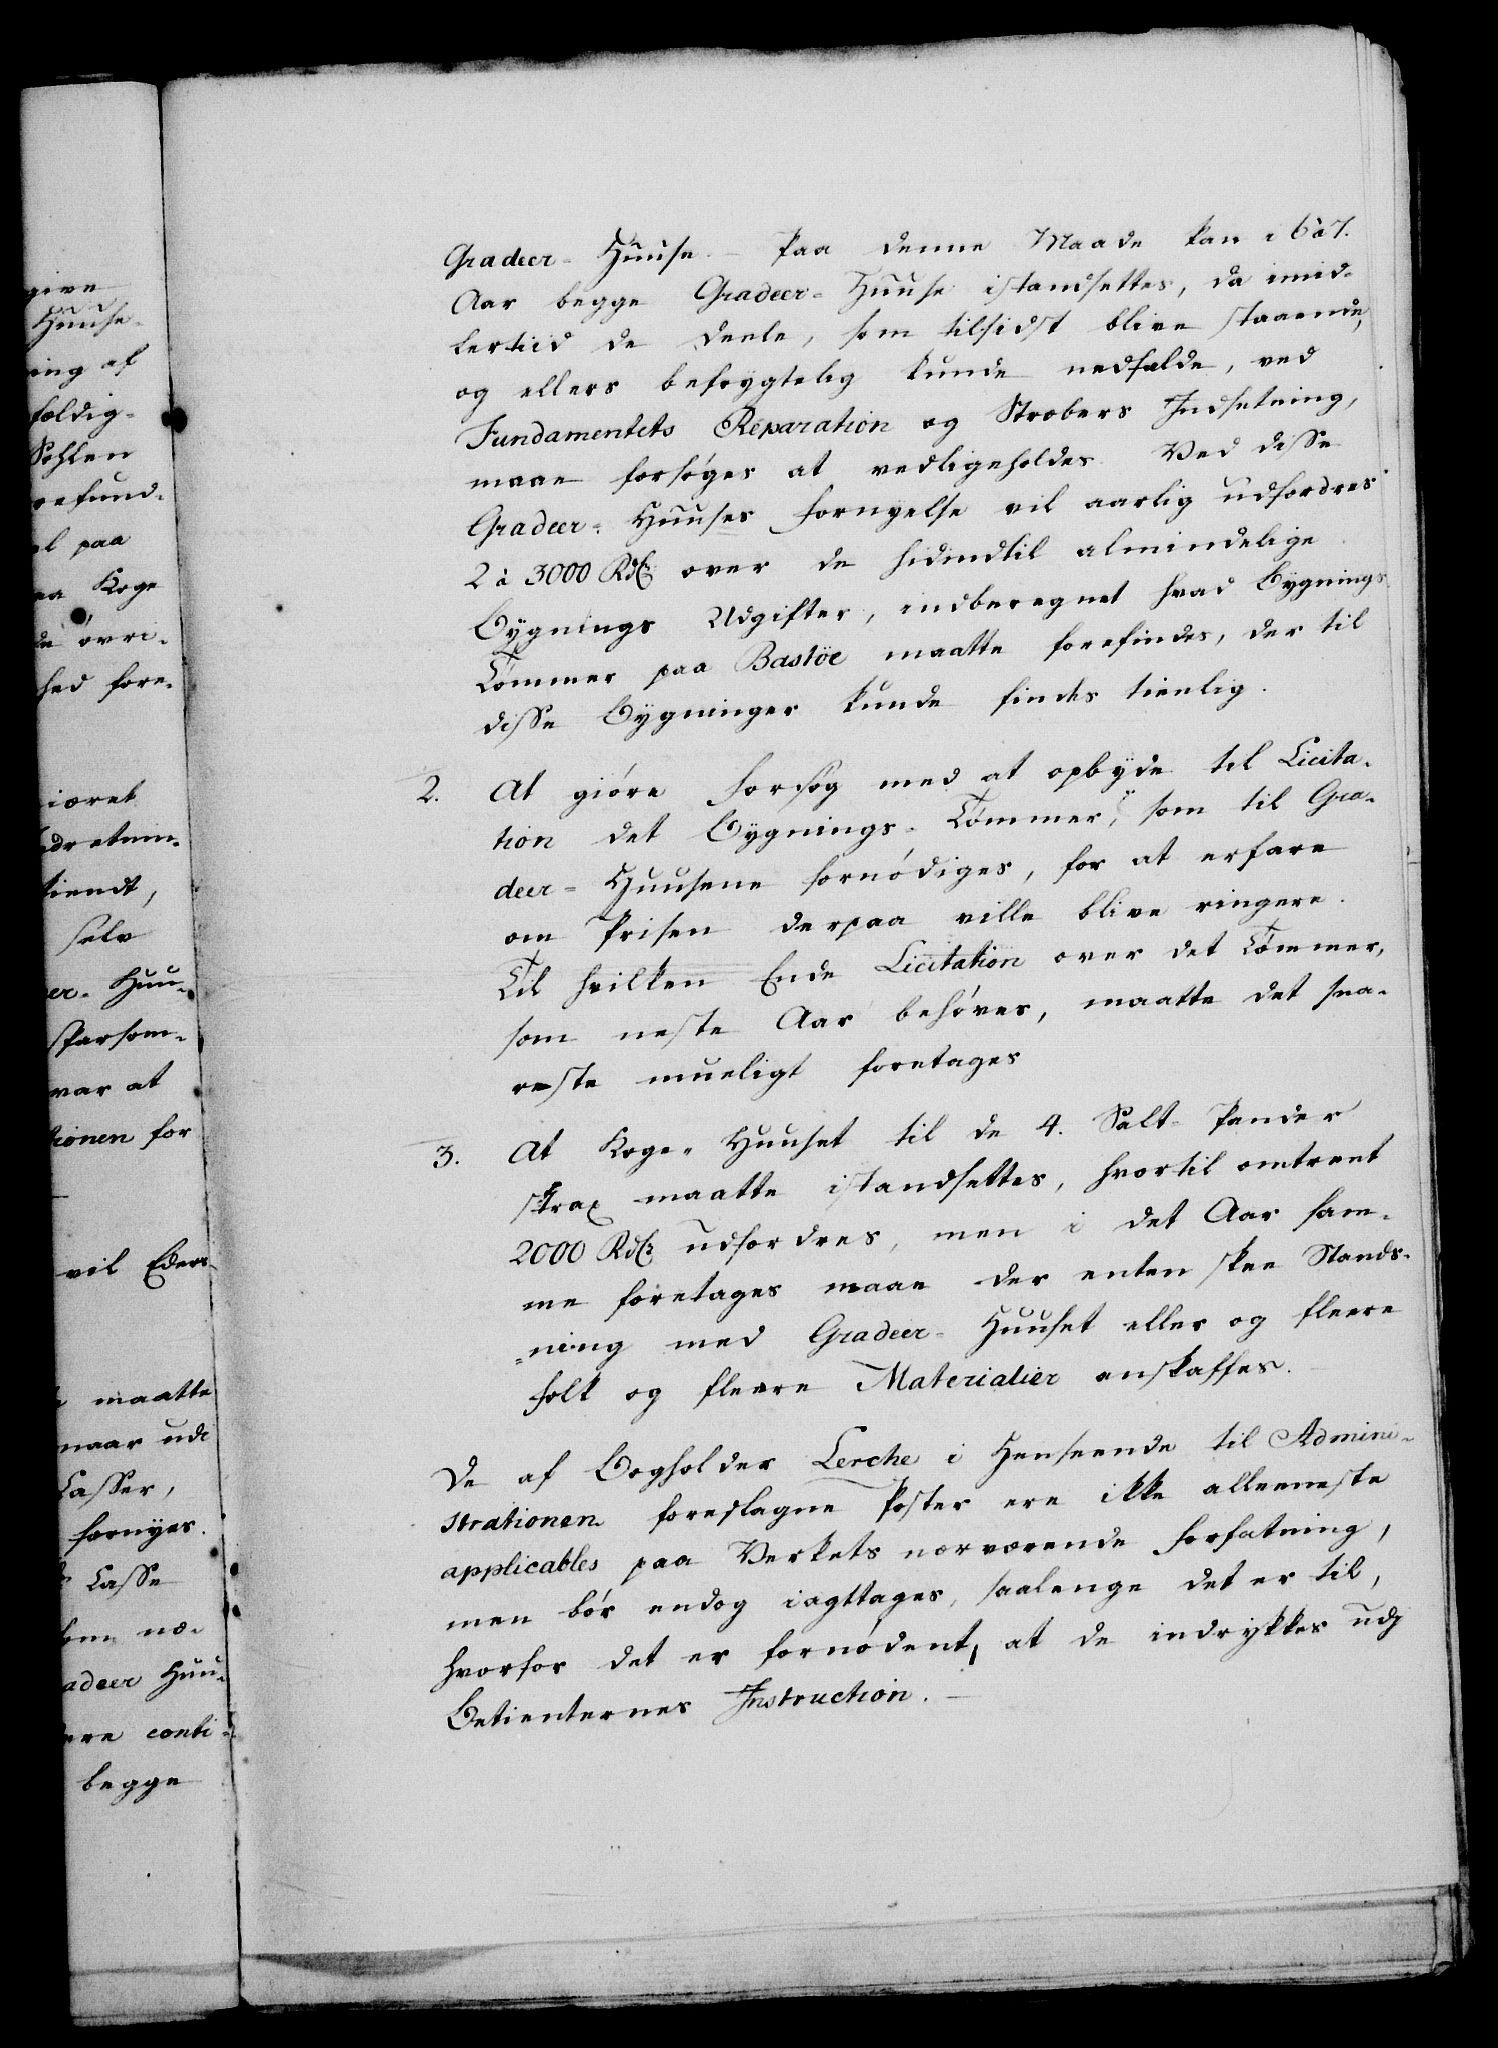 give
Huuse-
ing af
foldig-
Sohlen
refund-
el paa
aa Koge
de övri-
hed fore-
ioret
dretnin-
tiendt,
selv
er- Huu-
sparsom-
var at
tionen for
vil Eders
maatte
naar udi
Casser,
fornÿes.
Casse
som næ-
adeer Huu-
ere conti-
begge
Gradeer- Huuse. - Paa denne Maade kan i 6 à 7.
Aar begge Gradeer- Huuse istandsettes, da imid-
lertiid de Deele, som tilsidst blive staaende,
og ellers befrÿgtelig kunde nedfalde, ved
Fundamentets Reparation og Strobers Indsetning,
maae forsöges at vedligeholdes. Ved disse
Gradeer- Huuses Fornyelse vil aarlig udfordres
2 à 3000 Rdlr over de hidindtil almindelige
Bÿgnings Udgifter, indberegnet hvad Bÿgnings
Tömmer paa Bastöe maatte forefindes, der til
disse Bÿgninger kunde findes tienlig.
2. At giöre Forsög med at opbÿde til Licita-
tion det Bÿgnings- Tömmer, som til Gra-
deer- Huusene fornödiges, for at erfare
om Prisen derpaa ville blive ringere.
Til hvilken Ende Licitation over det Tömmer,
som neste Aar behöves, maatte det sna-
reste mueligt foretages
3. At Koge- Huuset til de 4. Salt- Pander
strax maatte istandsettes, hvortil omtrent
2000 Rdlr udfordres, men i det Aar sam-
me foretages maae der enten skee Stands-
-ning med Gradeer- Huuset eller og fleere
Folk og fleere Materialier anskaffes.
De af Bogholder Lerche i Henseende til Admini-
strationen foreslagne Poster ere ikke alleeneste
applicables paa Verkets nærværende Forfatning,
men bör endog iagttages, saalenge det er til,
hvorfor det er fornödent, at de indrykkes udj
Betienternes Instruction. -